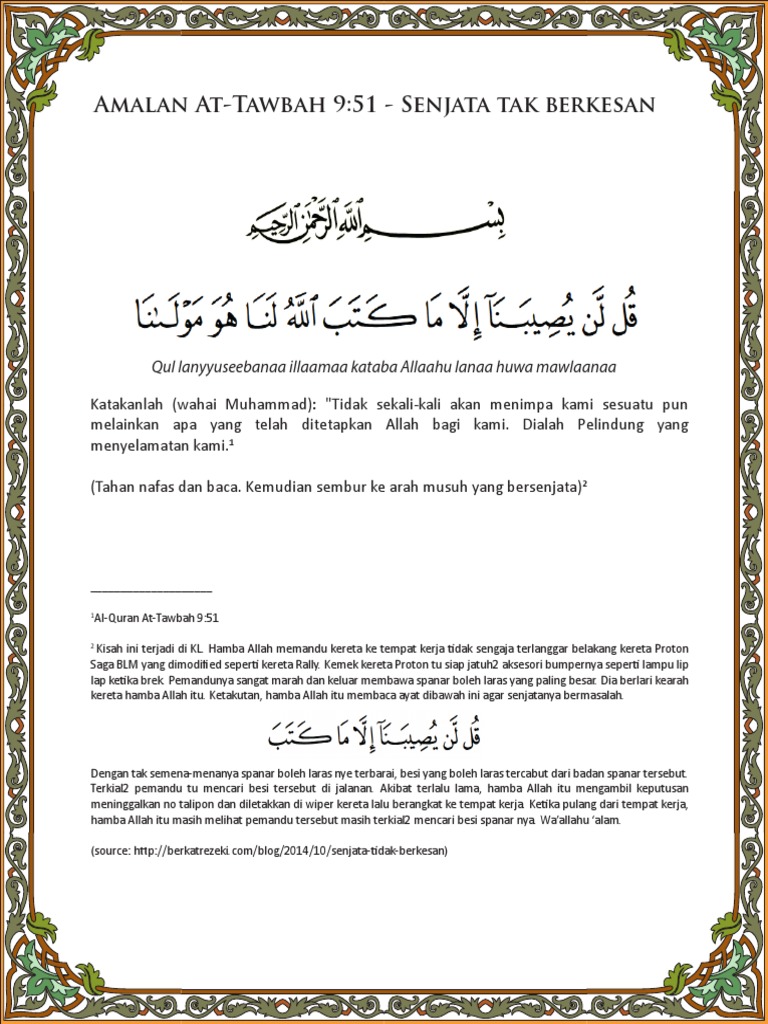 Amalan At-Tawbah 9:51 - Senjata tak berkesan
بِسْمِ ٱللَّهِ ٱلرَّحْمَٰنِ ٱلرَّحِيمِ
قُل لَّن يُصِيبَنَآ إِلَّا مَا كَتَبَ ٱللَّهُ لَنَا هُوَ مَوْلَىٰنَا
Qul lanyyuseebanaa illaamaa kataba Allaahu lanaa huwa mawlaanaa
Katakanlah (wahai Muhammad): "Tidak sekali-kali akan menimpa kami sesuatu pun
melainkan apa yang telah ditetapkan Allah bagi kami. Dialah Pelindung yang
menyelamatan kami.¹
(Tahan nafas dan baca. Kemudian sembur ke arah musuh yang bersenjata)²
¹Al-Quran At-Tawbah 9:51
² Kisah ini terjadi di KL. Hamba Allah memandu kereta ke tempat kerja tidak sengaja terlanggar belakang kereta Proton
Saga BLM yang dimodified seperti kereta Rally. Kemek kereta Proton tu siap jatuh2 aksesori bumpernya seperti lampu lip
lap ketika brek. Pemandunya sangat marah dan keluar membawa spanar boleh laras yang paling besar. Dia berlari kearah
kereta hamba Allah itu. Ketakutan, hamba Allah itu membaca ayat dibawah ini agar senjatanya bermasalah.
قُل لَّن يُصِيبَنَآ إِلَّا مَا كَتَبَ
Dengan tak semena-menanya spanar boleh laras nye terbarai, besi yang boleh laras tercabut dari badan spanar tersebut.
Terkial2 pemandu tu mencari besi tersebut di jalanan. Akibat terlalu lama, hamba Allah itu mengambil keputusan
meninggalkan no talipon dan diletakkan di wiper kereta lalu berangkat ke tempat kerja. Ketika pulang dari tempat kerja,
hamba Allah itu masih melihat pemandu tersebut masih terkial2 mencari besi spanar nya. Wa'allahu 'alam.
(source: http://berkatrezeki.com/blog/2014/10/senjata-tidak-berkesan)